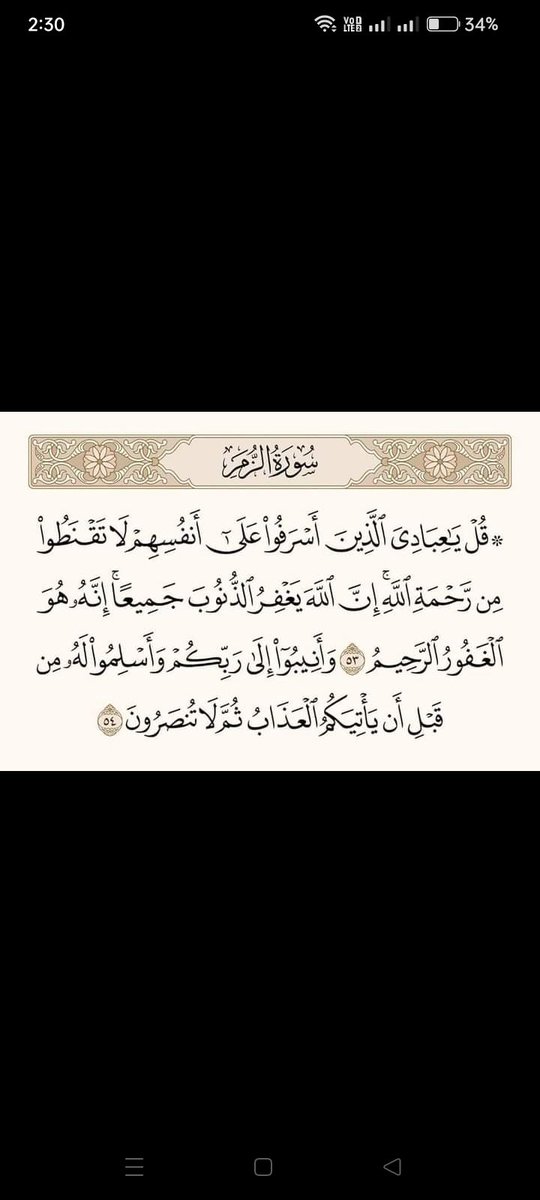 2:30 Vo LTE 2 34%
سُورَةُ الزُّمَرِ
* قُلْ يَٰعِبَادِىَ ٱلَّذِينَ أَسْرَفُوا۟ عَلَىٰٓ أَنفُسِهِمْ لَا تَقْنَطُوا۟
مِن رَّحْمَةِ ٱللَّهِ ۚ إِنَّ ٱللَّهَ يَغْفِرُ ٱلذُّنُوبَ جَمِيعًا ۚ إِنَّهُۥ هُوَ
ٱلْغَفُورُ ٱلرَّحِيمُ ٥٣ وَأَنِيبُوٓا۟ إِلَىٰ رَبِّكُمْ وَأَسْلِمُوا۟ لَهُۥ مِن
قَبْلِ أَن يَأْتِيَكُمُ ٱلْعَذَابُ ثُمَّ لَا تُنصَرُونَ ٥٤